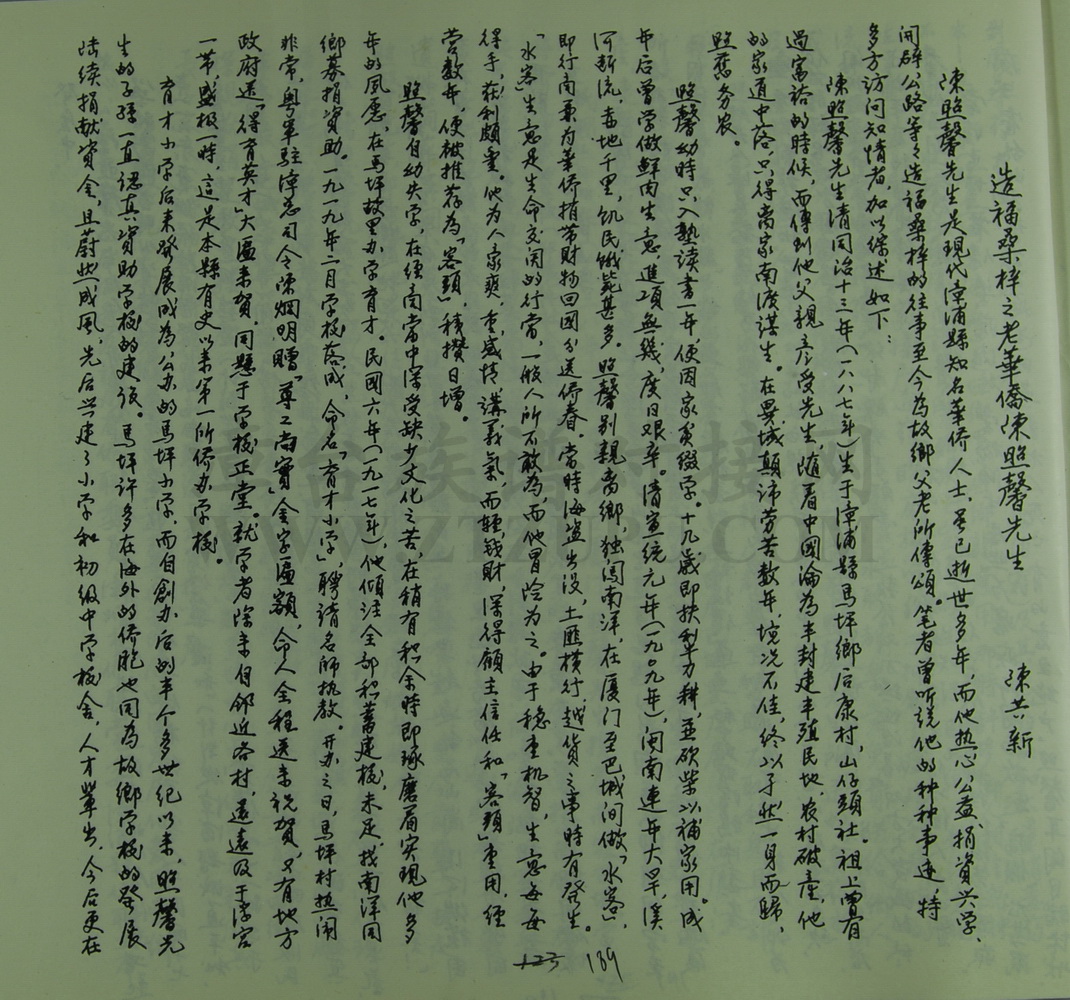 造福桑梓之老華僑陳照馨先生 陳共新
陳照馨先生是現代漳浦縣知名華侨人士,虽已逝世多年,而他热心公益,捐資兴学,
開辟公路等等造福桑梓的往事至今為故鄉父老所傳頌。笔者曾听说他的种种事迹,特
多方访问知情者,加以综述如下:
陳照馨先生清同治十三年(一八八七年)生于漳浦縣馬坪鄉后康村,山仔頭社。祖上曾有
過富裕的時候,而傳到他父親彥受先生,随着中國淪為半封建半殖民地,农村破產,他
的家道中落,只得离家南渡謀生。在異域顛沛劳苦数年,境况不佳,终以孑然一身而歸,
照舊务农。
照馨幼時只入塾读書一年,便因家贫缀学。十九歲即扶犁力耕,並砍柴以補家用。成
年后曾学做鮮肉生意,進項無幾,度日艰辛。清宣统元年(一九0九年),闽南連年大旱,溪
河断流,赤地千里,饥民饿毙甚多。照馨别親离鄉,独闯南洋,在厦门至巴城间做「水客」,
即行商兼为華侨捎带財物回國分送侨眷。當時海盗出没,土匪横行,越貨之事時有發生。
「水客」生意是生命交関的行當,一般人所不敢為,而他冒险为之。由于穩重机智,生意每每
得手,获利頗重。他为人豪爽,重感情,講義氣,而轻钱財,深得顧主信任和「客頭」重用,经
营数年,便被推荐为「客頭」,積攢日增。
照馨自幼失学,在经商當中深受缺少文化之苦,在稍有积余時即琢磨着实現他多
年的夙愿,在馬坪故里办学育才。民國六年(一九一七年),他倾注全部积蓄建校,未足,找南洋同
鄉募捐資助。一九一九年二月学校落成,命名「育才小学」,聘请名师执教。开办之日,馬坪村热闹
非常,粤軍駐漳总司令陳烟明贈「尊工尚實」金字匾額,命人全程送来祝贺,又有地方
政府送「得育英才」大匾来贺,同懸于学校正堂。就学者除来自邻近各村,還遠及于浮宫
一带,盛极一時,這是本縣有史以来第一所侨办学校。
育才小学后来發展成為公办的馬坪小学,而自創办后的半个多世纪以来,照馨先
生的子孫一直認真資助学校的建設。馬坪许多在海外的侨胞也同為故鄉学校的發展
陆续捐献資金,且蔚然成風,先后兴建了小学和初级中学校舍,人才輩出,今后更在
123 139
族谱 接网
WWW.ZTZUPU.COM